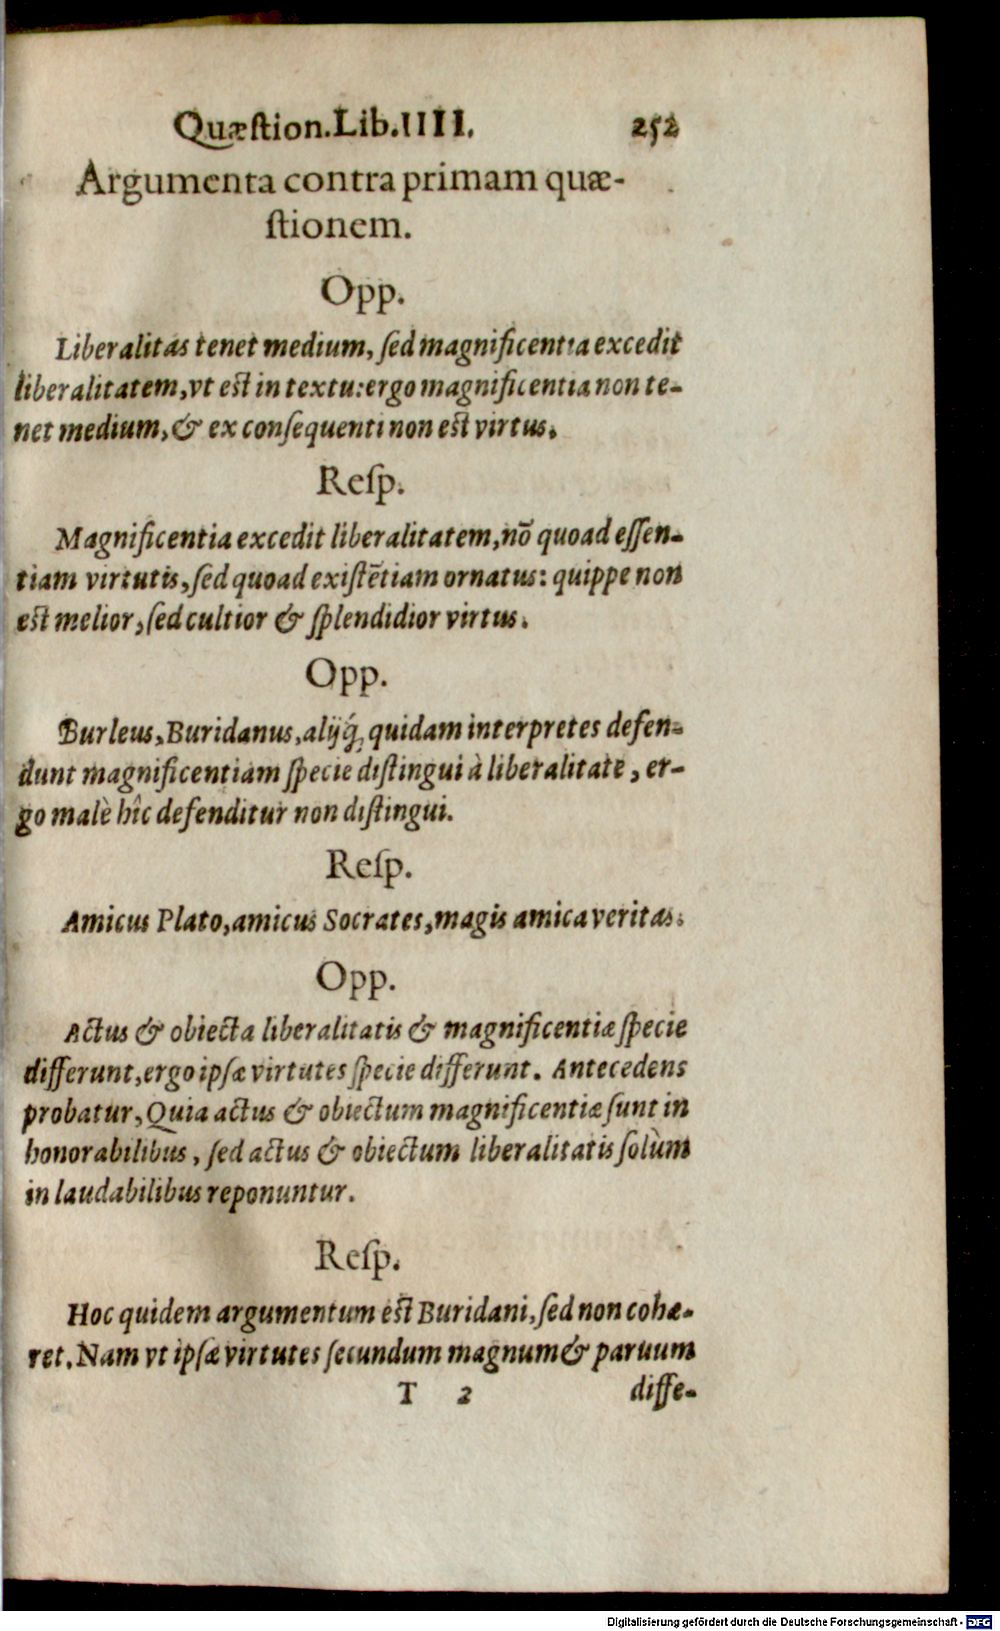 Quæſtion.Lib.IIII. 252
Argumenta contra primam quæ-
ſtionem.
Opp.
Liberalitas tenet medium, ſed magnificentia excedit
liberalitatem, vt eſt in textu: ergo magnificentia non te-
net medium, & ex conſequenti non eſt virtus.
Reſp.
Magnificentia excedit liberalitatem, nō quoad eſſen-
tiam virtutis, ſed quoad exiſtētiam ornatus: quippe non
eſt melior, ſed cultior & ſplendidior virtus.
Opp.
Burleus, Buridanus, alijq́; quidam interpretes defen-
dunt magnificentiam ſpecie diſtingui à liberalitate, er-
go malè hîc defenditur non diſtingui.
Reſp.
Amicus Plato, amicus Socrates, magis amica veritas.
Opp.
Actus & obiecta liberalitatis & magnificentiæ ſpecie
differunt, ergo ipſæ virtutes ſpecie differunt. Antecedens
probatur, Quia actus & obiectum magnificentiæ ſunt in
honorabilibus, ſed actus & obiectum liberalitatis ſolùm
in laudabilibus reponuntur.
Reſp.
Hoc quidem argumentum eſt Buridani, ſed non cohæ-
ret. Nam vt ipſæ virtutes ſecundum magnum & paruum
T 2 diffe-
Digitalisierung gefördert durch die Deutsche Forschungsgemeinschaft - DFG